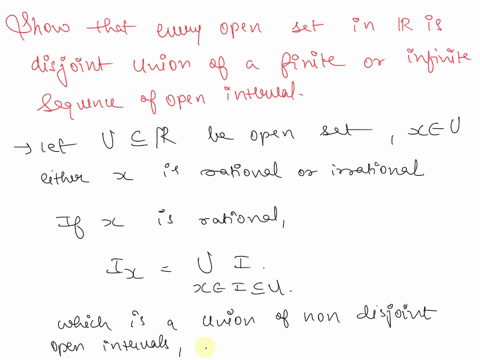 Show that every open set in ℝ is
disjoint union of a finite or infinite
sequence of open interval.
→ Let U ⊆ ℝ be open set, x ∈ U
either x is rational or irrational
If x is rational,
I_x = ∪ I.
x ∈ I ⊆ U.
which is a union of non disjoint
open intervals,